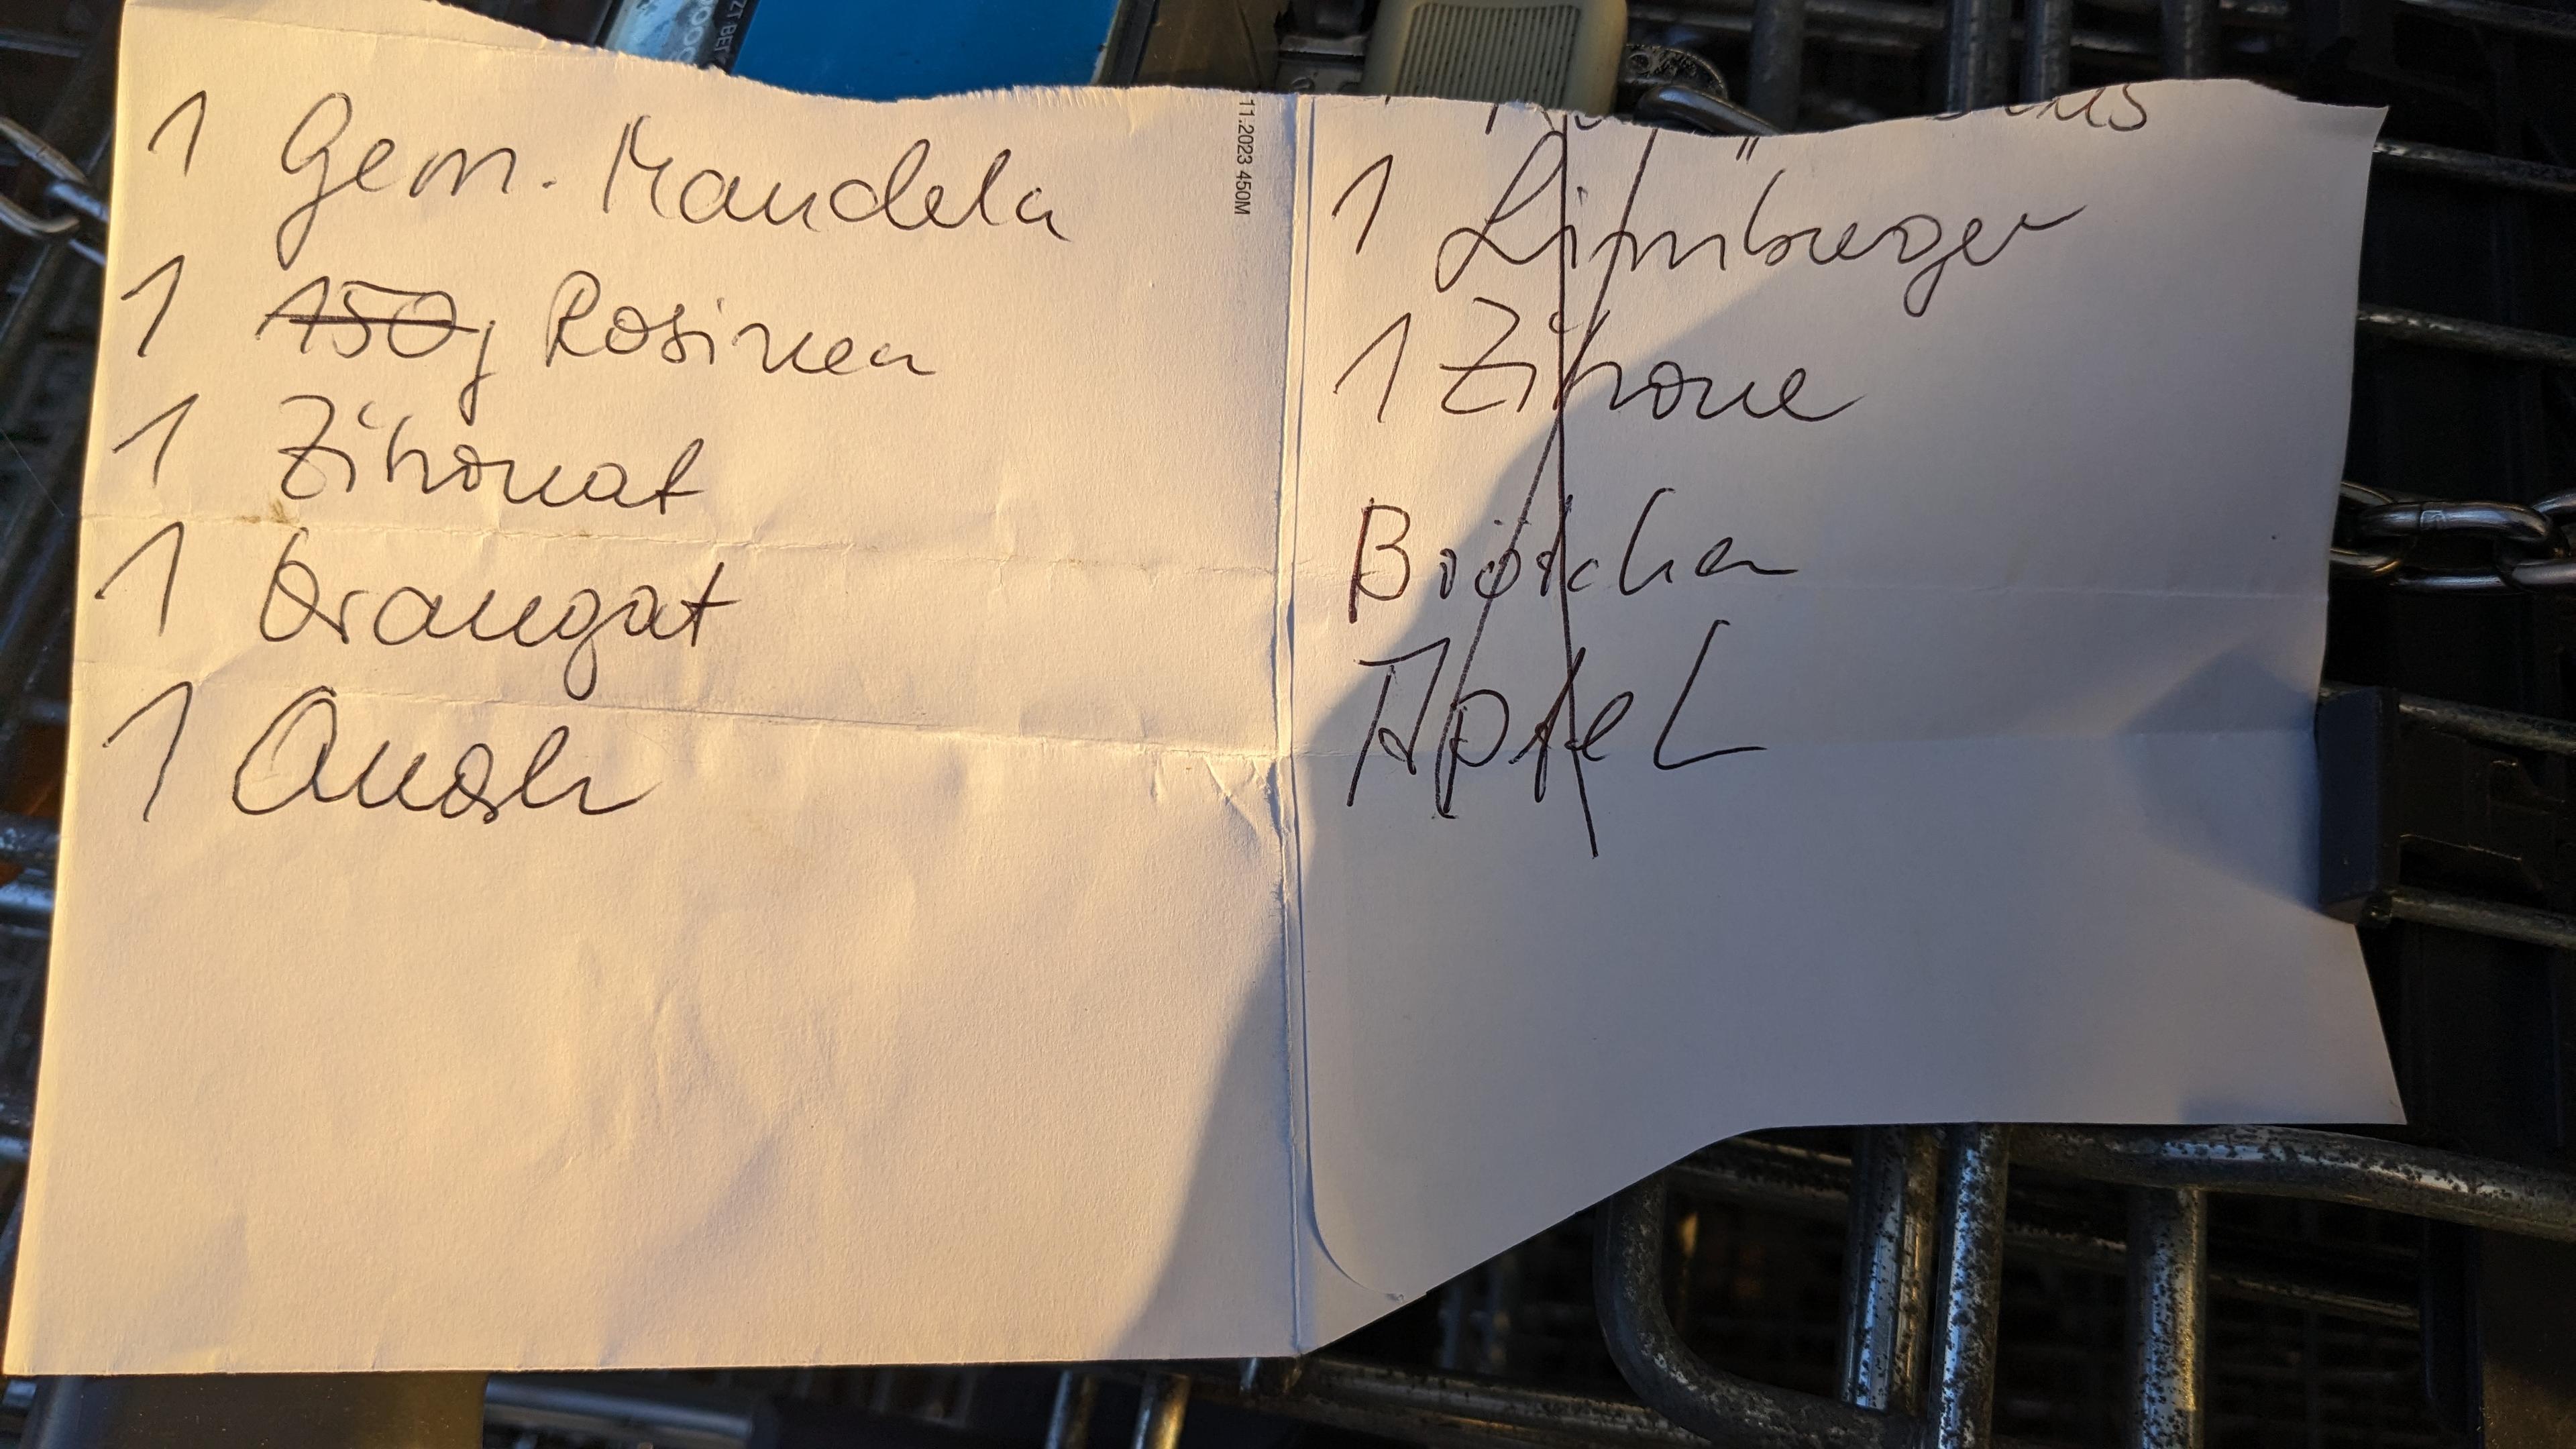 1 Gem. Mandeln
1 150g Rosinen
1 Zitronat
1 Orangat
1 Quark
11.2023 450M
1 Limburger
1 Zitrone
Brötchen
Äpfel